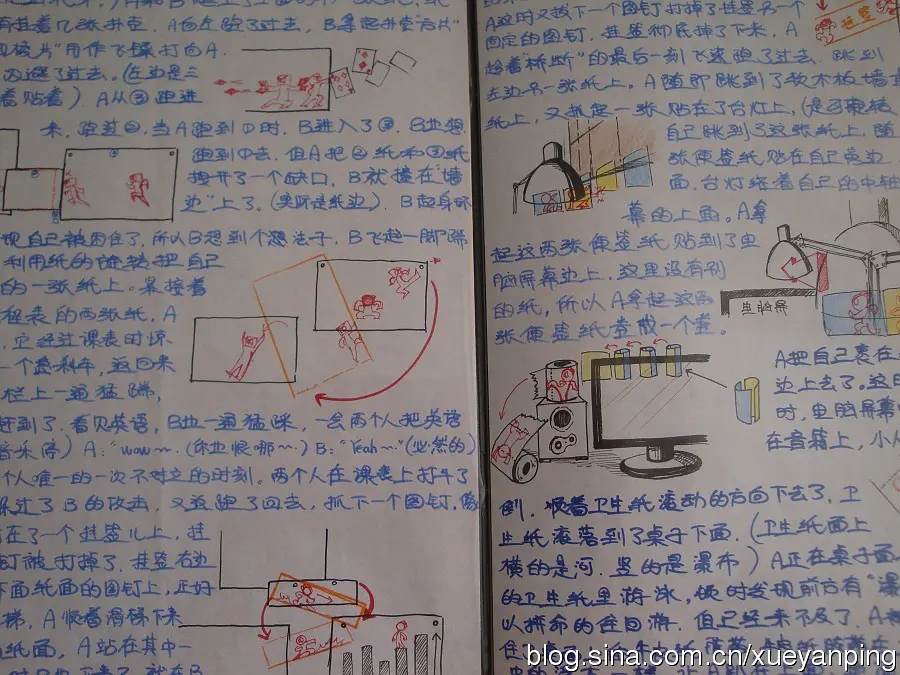 有挂着几张扑克. A向左跑了过去, B拿起扑克"方片"
"方片"用作飞镖打向A.
闪避了过去. (左边是三
着贴着) A从③跑进
来, 跑过②, 当A跑到①时, B进入了③, B也想
跑到①中去, 但A把②纸和③纸
搜开了一个缺口, B就撞在"墙
边"上了. (实际是纸边). B起身
现自己被困住了, 所以B想到个办法子, B飞起一脚踢
利用纸的旋转把自己
的一张纸上. 紧接着
程表的两张纸, A
它经过课表时惊
一个急刹车, 返回来
栏上一通猛踹,
赶到了, 看见英语, B也一通猛踩, 一会两个人把英语
音乐停) A: "wow~. (你也恨哪~) B: "Yeah~"(必然的)
个人唯一的一次不对立的时刻. 两个人在课表上打斗了
躲过了B的攻击, 又返跑了回去, 抓下一个图钉, 像
在了一个挂签儿上, 挂
钉被打掉了, 挂签右边
下面纸面的图钉上, 正好
梯, A顺着滑梯下来
纸面, A站在其中一
A这时又拔下一个图钉打掉了挂签另一个
固定的图钉, 挂签彻底掉了下来, A
趁着"桥断"的最后一刻飞速跑了过去, 跳到
左边另一张纸上. A随即跳到了软木板墙
纸上, 又抓起一张贴在了台灯上, (是
自己跳到了这张纸上, 随
张便签纸贴在自己旁边
面, 台灯绕着自己的中轴
幕的上面. A拿
起这两张便签纸贴到了电
脑屏幕边上. 这里没有别
的纸, 所以A拿起这两
张便签纸卷成一个卷.
电脑屏
A把自己裹在
边上去了. 这
时, 电脑屏幕
在音箱上, 小
倒, 顺着卫生纸滚动的方向下去了, 卫
生纸滚落到了桌子下面. (卫生纸面上
横的是河, 竖的是瀑布) A正在桌子面
的卫生纸里游泳, 顿时发现前方有"瀑
以拼命的往回游. 但已经来不及了, A
blog.sina.com.cn/xueyanping